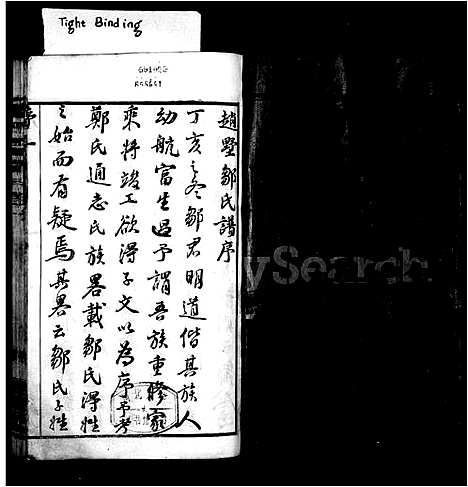 Tight Binding
趙墅鄒氏譜序
丁亥之冬鄒君明道偕其族人
幼航富生過予謂吾族重修家
乘將竣工欲得子文以為序予考
鄭氏通志氏族畧載鄒氏得姓
之始而有疑焉其畧云鄒氏子姓
序一
ySearch